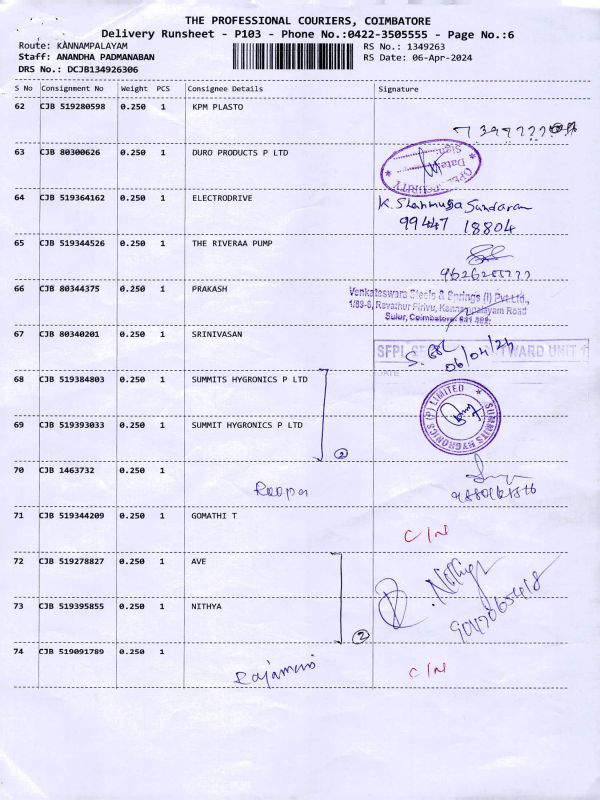 THE PROFESSIONAL COURIERS, COIMBATORE
Delivery Runsheet - P103 - Phone No.:0422-3505555 - Page No.:6
Route: KANNAMPALAYAM RS No.: 1349263
Staff: ANANDHA PADMANABAN RS Date: 06-Apr-2024
DRS No.: DCJB134926306
S No Consignment No Weight PCS Consignee Details Signature
62 CJB 519280598 0.250 1 KPM PLASTO
63 CJB 80300626 0.250 1 DURO PRODUCTS P LTD
Sign:
Date:
64 CJB 519364162 0.250 1 ELECTRODRIVE K. Shanmuga Sundaram
99447 18804
65 CJB 519344526 0.250 1 THE RIVERAA PUMP
66 CJB 80344375 0.250 1 PRAKASH
Venkateswara Steels & Springs (I) Pvt.Ltd.,
1/89-6, Ravathur Pirivu, Kannampalayam Road
Sulur, Coimbatore
67 CJB 80340201 0.250 1 SRINIVASAN
06/04/24
68 CJB 519384803 0.250 1 SUMMITS HYGRONICS P LTD
SUMMITS HYGRONICS (P) LIMITED
69 CJB 519393033 0.250 1 SUMMIT HYGRONICS P LTD
2
70 CJB 1463732 0.250 1
Roopa
71 CJB 519344209 0.250 1 GOMATHI T C/N
72 CJB 519278827 0.250 1 AVE
73 CJB 519395855 0.250 1 NITHYA
2
74 CJB 519091789 0.250 1 C/N
Rajamani